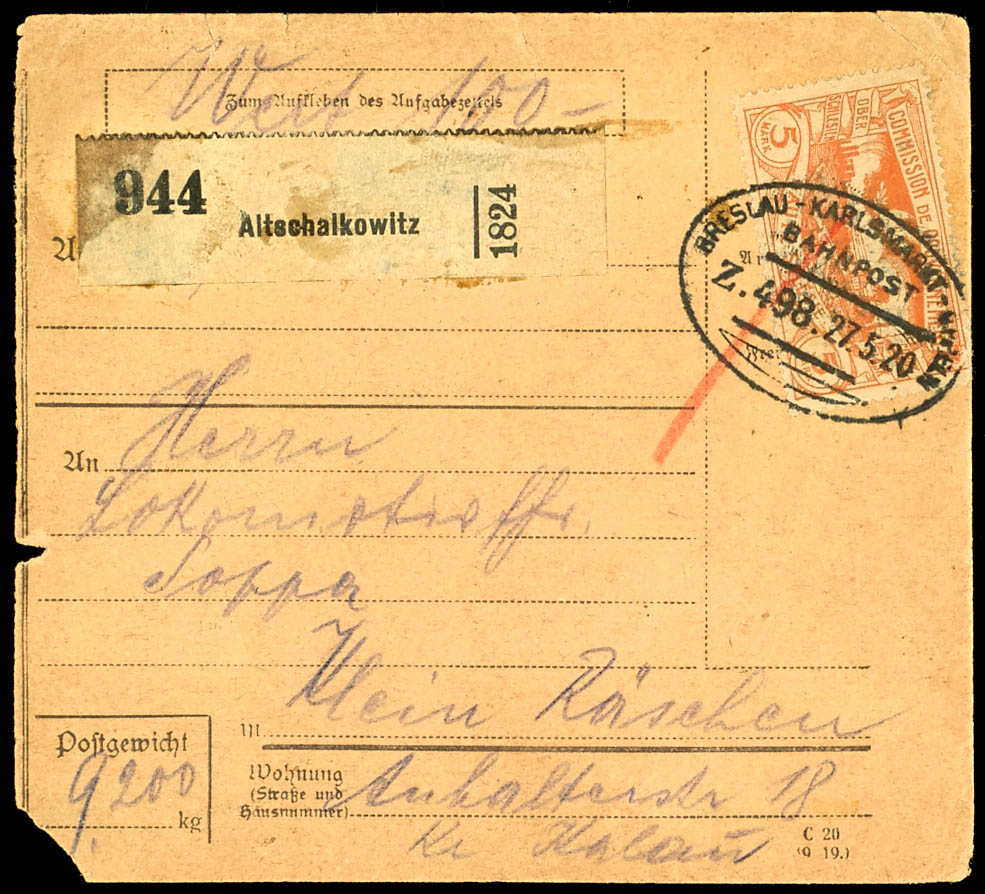 Wert 100-
Zum Aufkleben des Aufgabezettels
944
Altschalkowitz
1824
5
MARK
OBER
SCHLESIEN
COMMISSION DE
BRESLAU-KARLSMARKT-
BAHNPOST
Z.498.27.5.20
Frei
Herrn
An
Lokomotivffr.
Soppa
Klein Räschen
in
Postgewicht
9 200
kg
Wohnung
(Straße und
Hausnummer)
Anhalterstr 18
Kr Kalau
C 20
(9 19.)